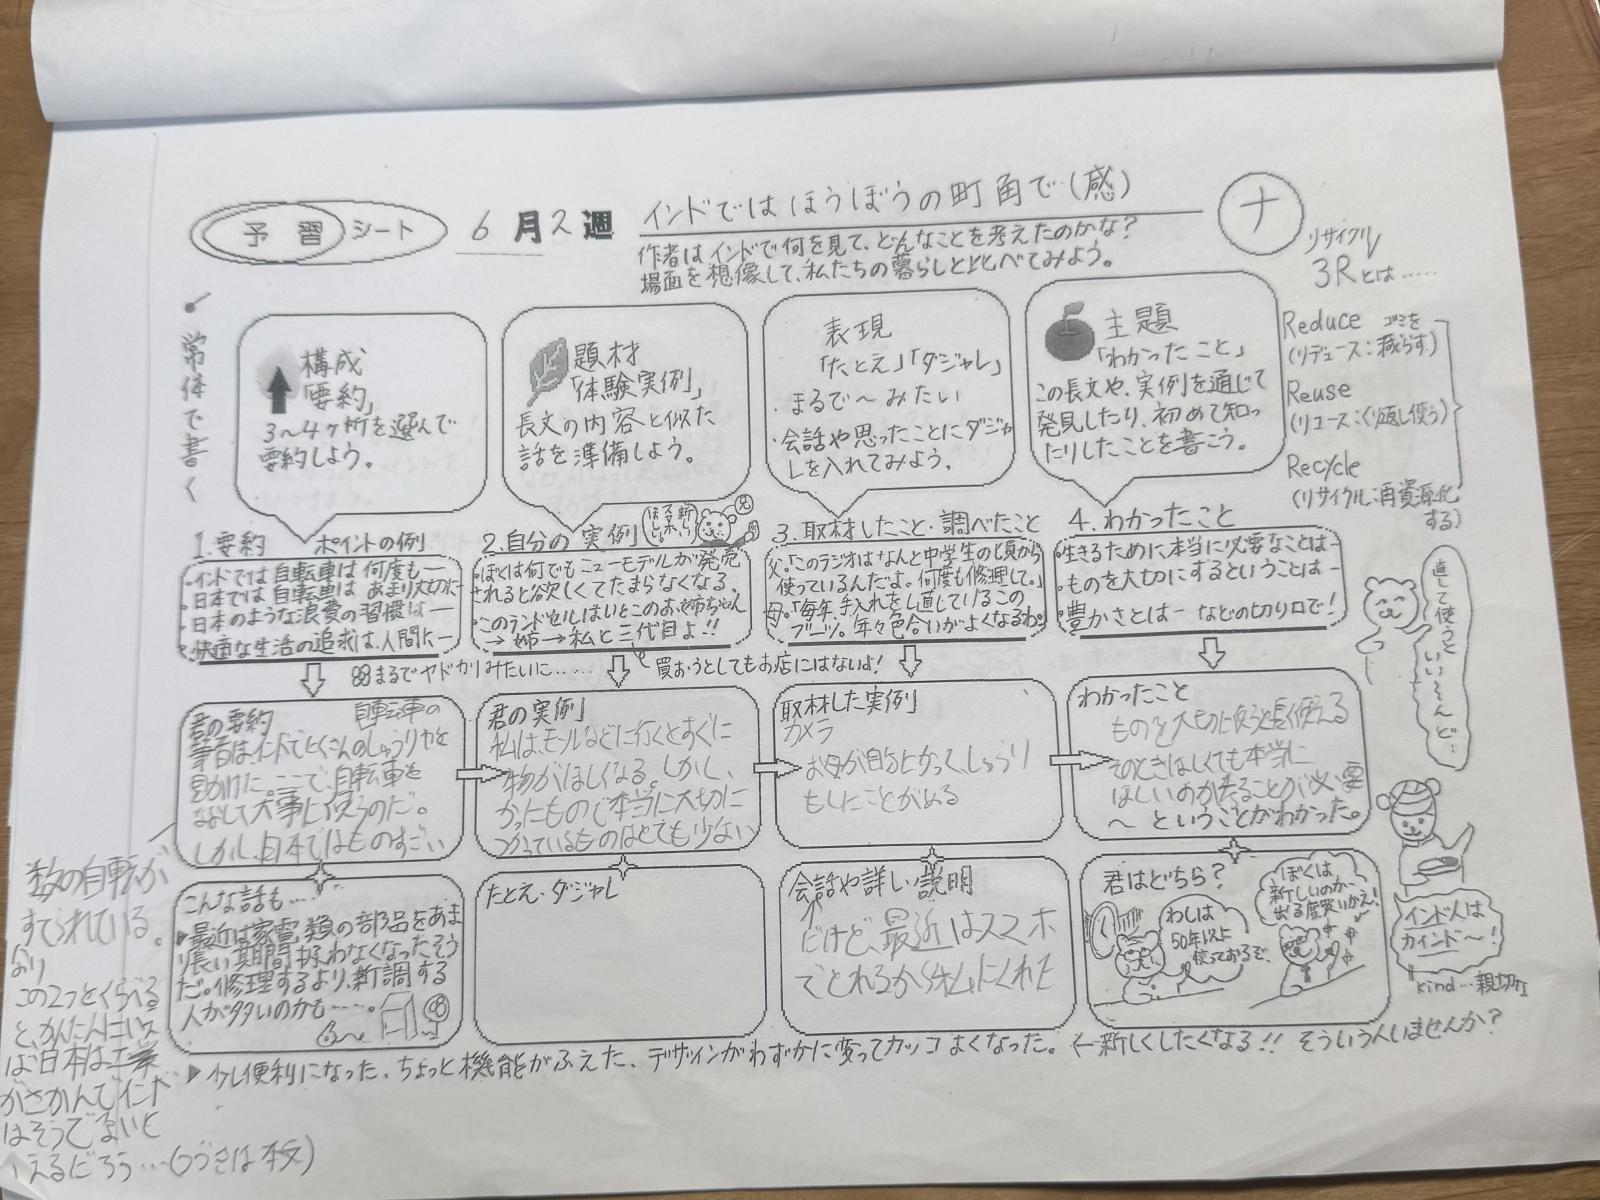 予習シート 6月2週 インドではほうぼうの町角で(感) ナ
作者はインドで何を見て、どんなことを考えたのかな?
場面を想像して、私たちの暮らしと比べてみよう。
リサイクル
3Rとは……
Reduce ゴミを
(リデュース:減らす)
Reuse
(リユース:くり返し使う)
Recycle
(リサイクル:再資源化
する)
常体で書く
構成
「要約」
3〜4ヶ所を選んで
要約しよう。
題材
「体験実例」
長文の内容と似た
話を準備しよう。
表現
「たとえ」「ダジャレ」
・まるで〜みたい
・会話や思ったことにダジャ
レを入れてみよう。
主題
「わかったこと」
この長文や、実例を通じて
発見したり、初めて知っ
たりしたことを書こう。
1.要約 ポイントの例
・インドでは自転車は何度も―
・日本では自転車はあまり大切に―
・日本のような浪費の習慣は―
・快適な生活の追求は、人間に―
2.自分の実例
新しい
スマホ
ほしい
兄
・ぼくは何でもニューモデルが発売
されると欲しくてたまらなくなる。
・このランドセルはいとこのお姉ちゃん
→姉→私と三代目よ!!
3.取材したこと・調べたこと
父「このラジオはなんと中学生の頃から
使っているんだよ。何度も修理して。」
母「毎年、手入れをし直しているこの
ブーツ。年々色合いがよくなるわ。
4.わかったこと
・生きるために本当に必要なことは―
・ものを大切にするということは―
・豊かさとは― などの切り口で!
まるでヤドカリみたいに……
買おうとしてもお店にはないよ!
直して使うといいんだ…
君の要約 自転車の
筆者は、インドでたくさんのしゅうりやを
見かけた。ここで、自転車を
なおして大事に使うのだ。
しかし、日本ではものすごい
数の自転が
すてられている。
この2つをくらべる
と、かんたんにいえ
ば日本は工業
がさかんでインド
はそうでないと
いえるだろう…(つづきは本文)
君の実例
私は、モールなどに行くとすぐに
物がほしくなる。しかし、
かったもので本当に大切に
つかっているものはとても少ない
取材した実例
カメラ
お母が自分でかって、しゅうり
もしたことがある
わかったこと
ものを大切に使うと長く使える
そのときほしくても本当に
ほしいのか考えることが必要
〜ということがわかった。
こんな話も…
▶最近は家電類の部品をあま
り長い期間扱わなくなったそう
だ。修理するより、新調する
人が多いのかも……。
たとえ・ダジャレ
会話や詳しい説明
だけど、最近はスマホ
でとれるから私にくれた
君はどちら?
わしは
50年以上
使っておるぞ。
ぼくは
新しいのが
出る度買いかえ!
インド人は
カインド〜!
"kind…親切な
▶少し便利になった、ちょっと機能がふえた、デザインがわずかに変ってカッコよくなった。←新しくしたくなる!! そういう人いませんか?